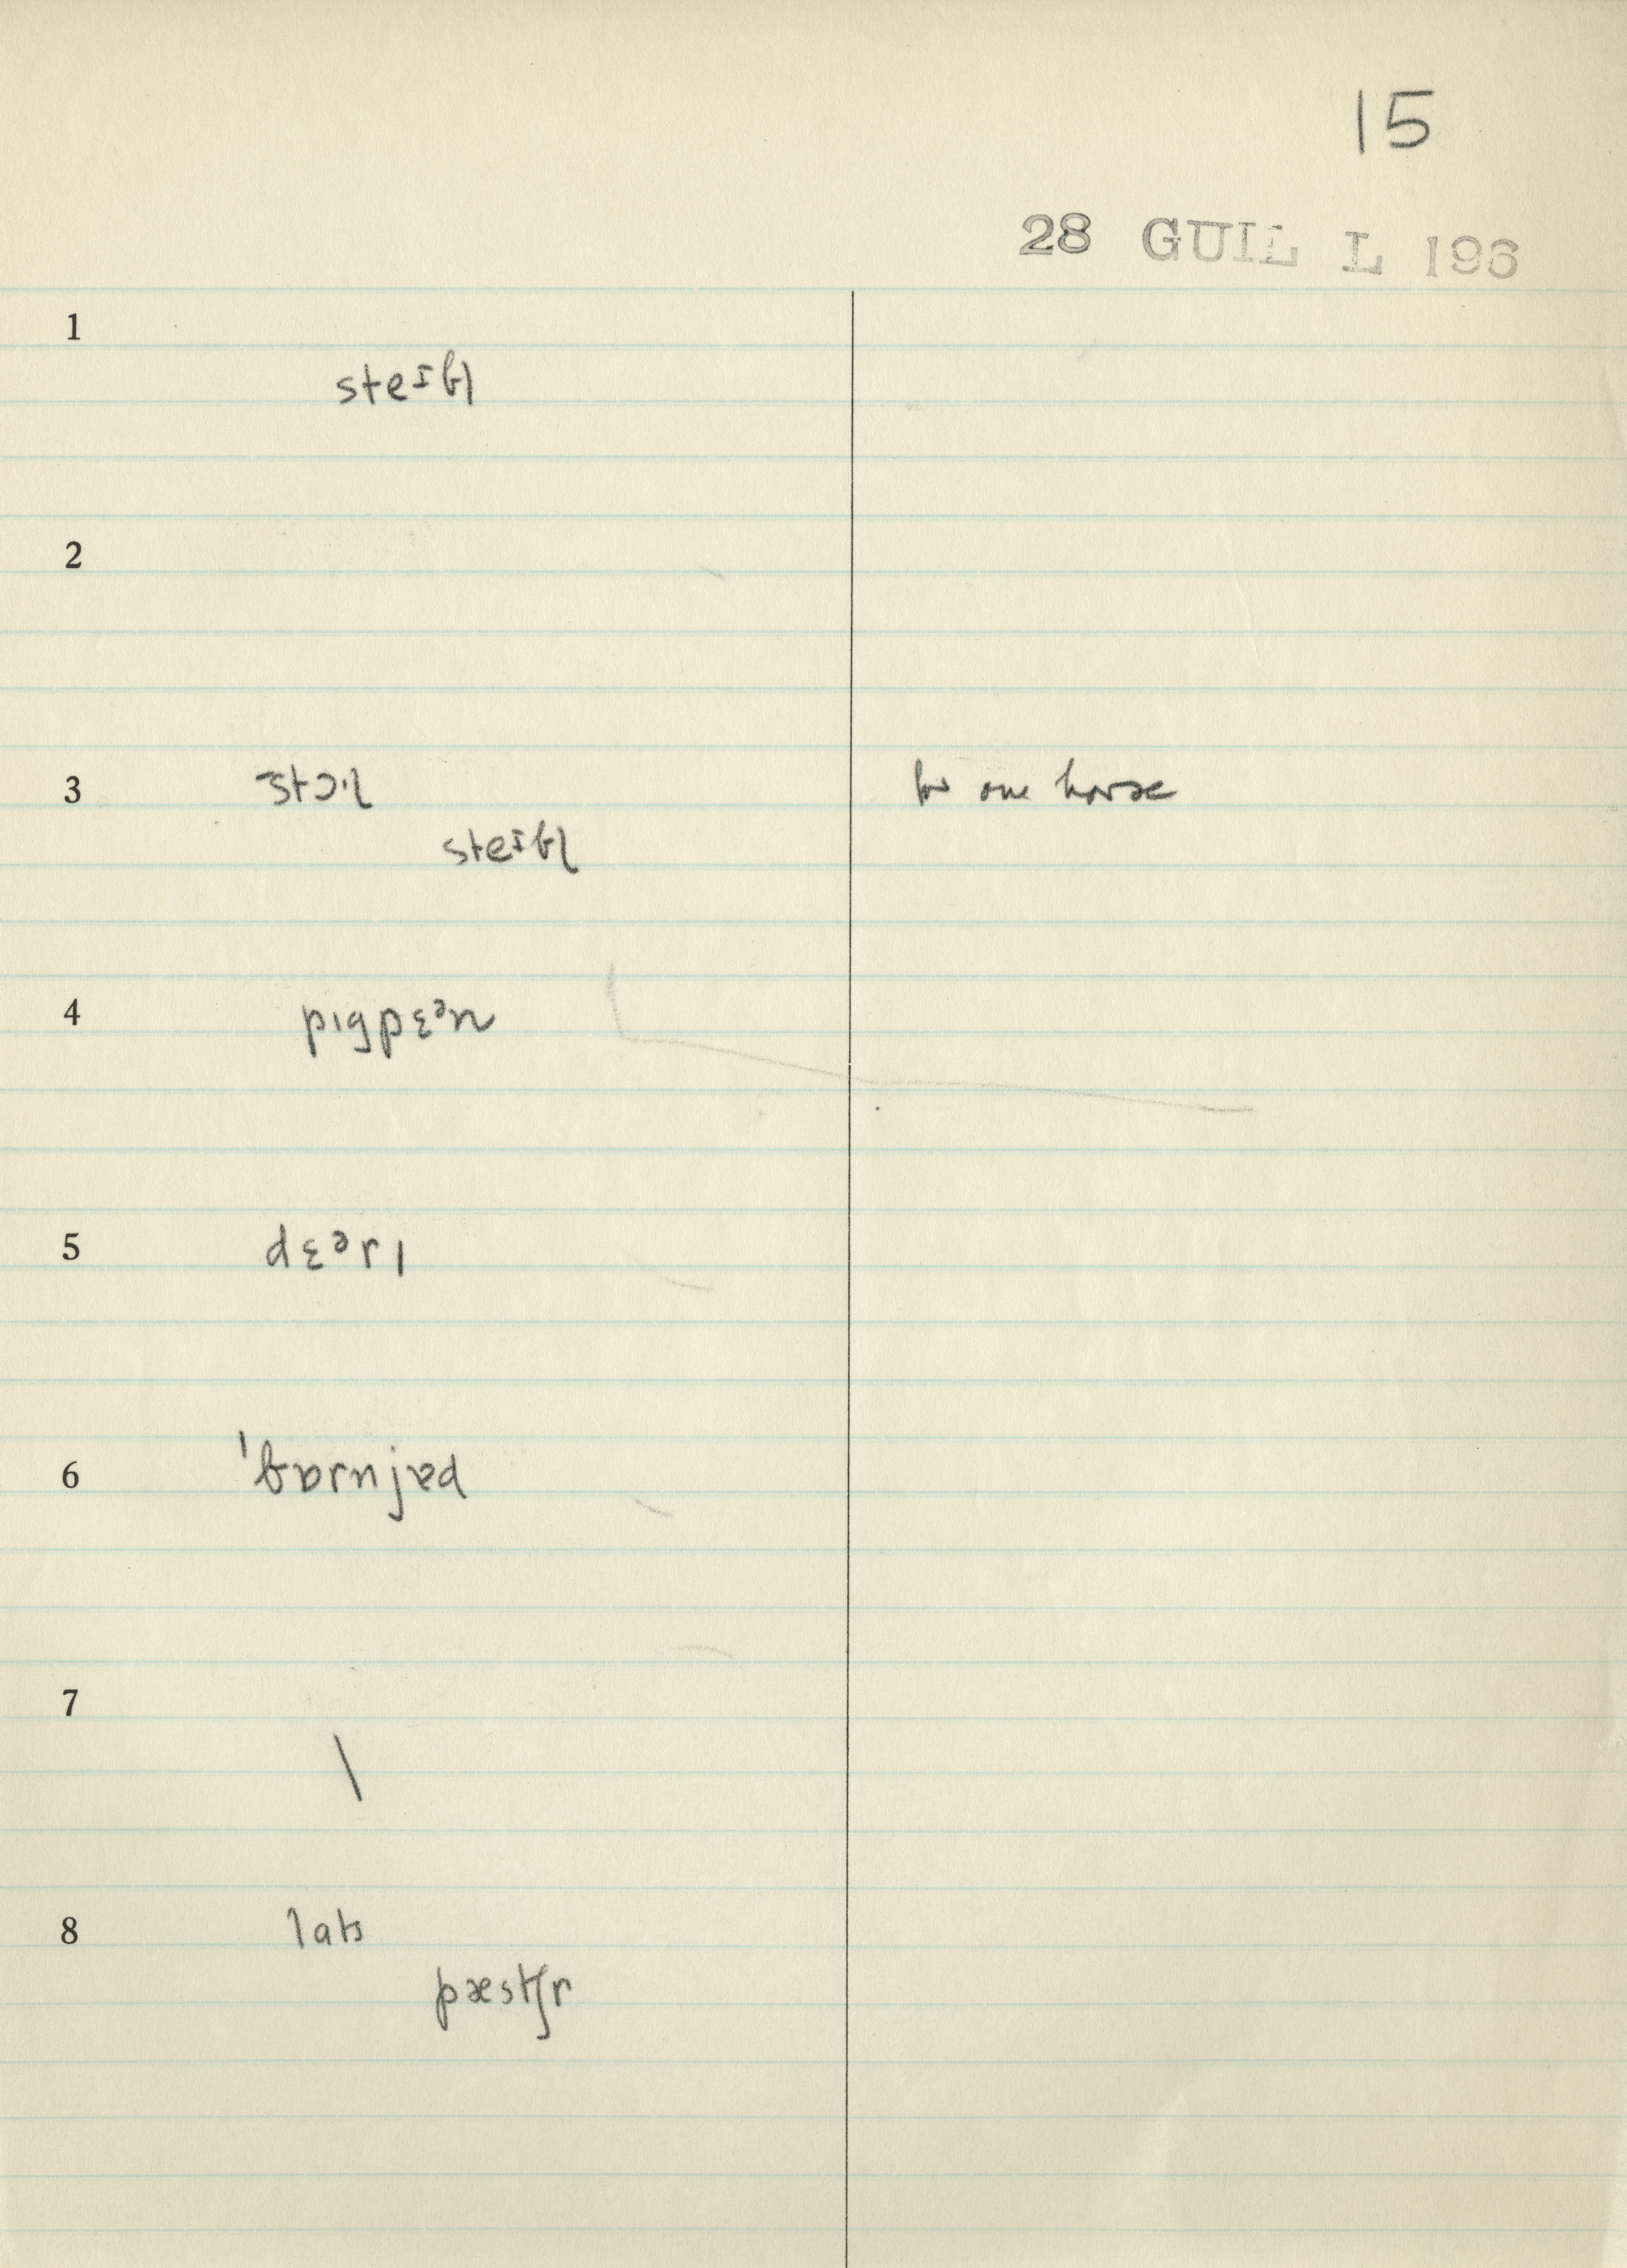 15
28 GUIL L 196
1
steɪbl̩
2
3 stɔ·l for one horse
steɪbl̩
4 pɪgpɛᵊn
5 dɛᵊrɪ
6 'bɒrnjɐd
7
\
8 lats
pæstʃr